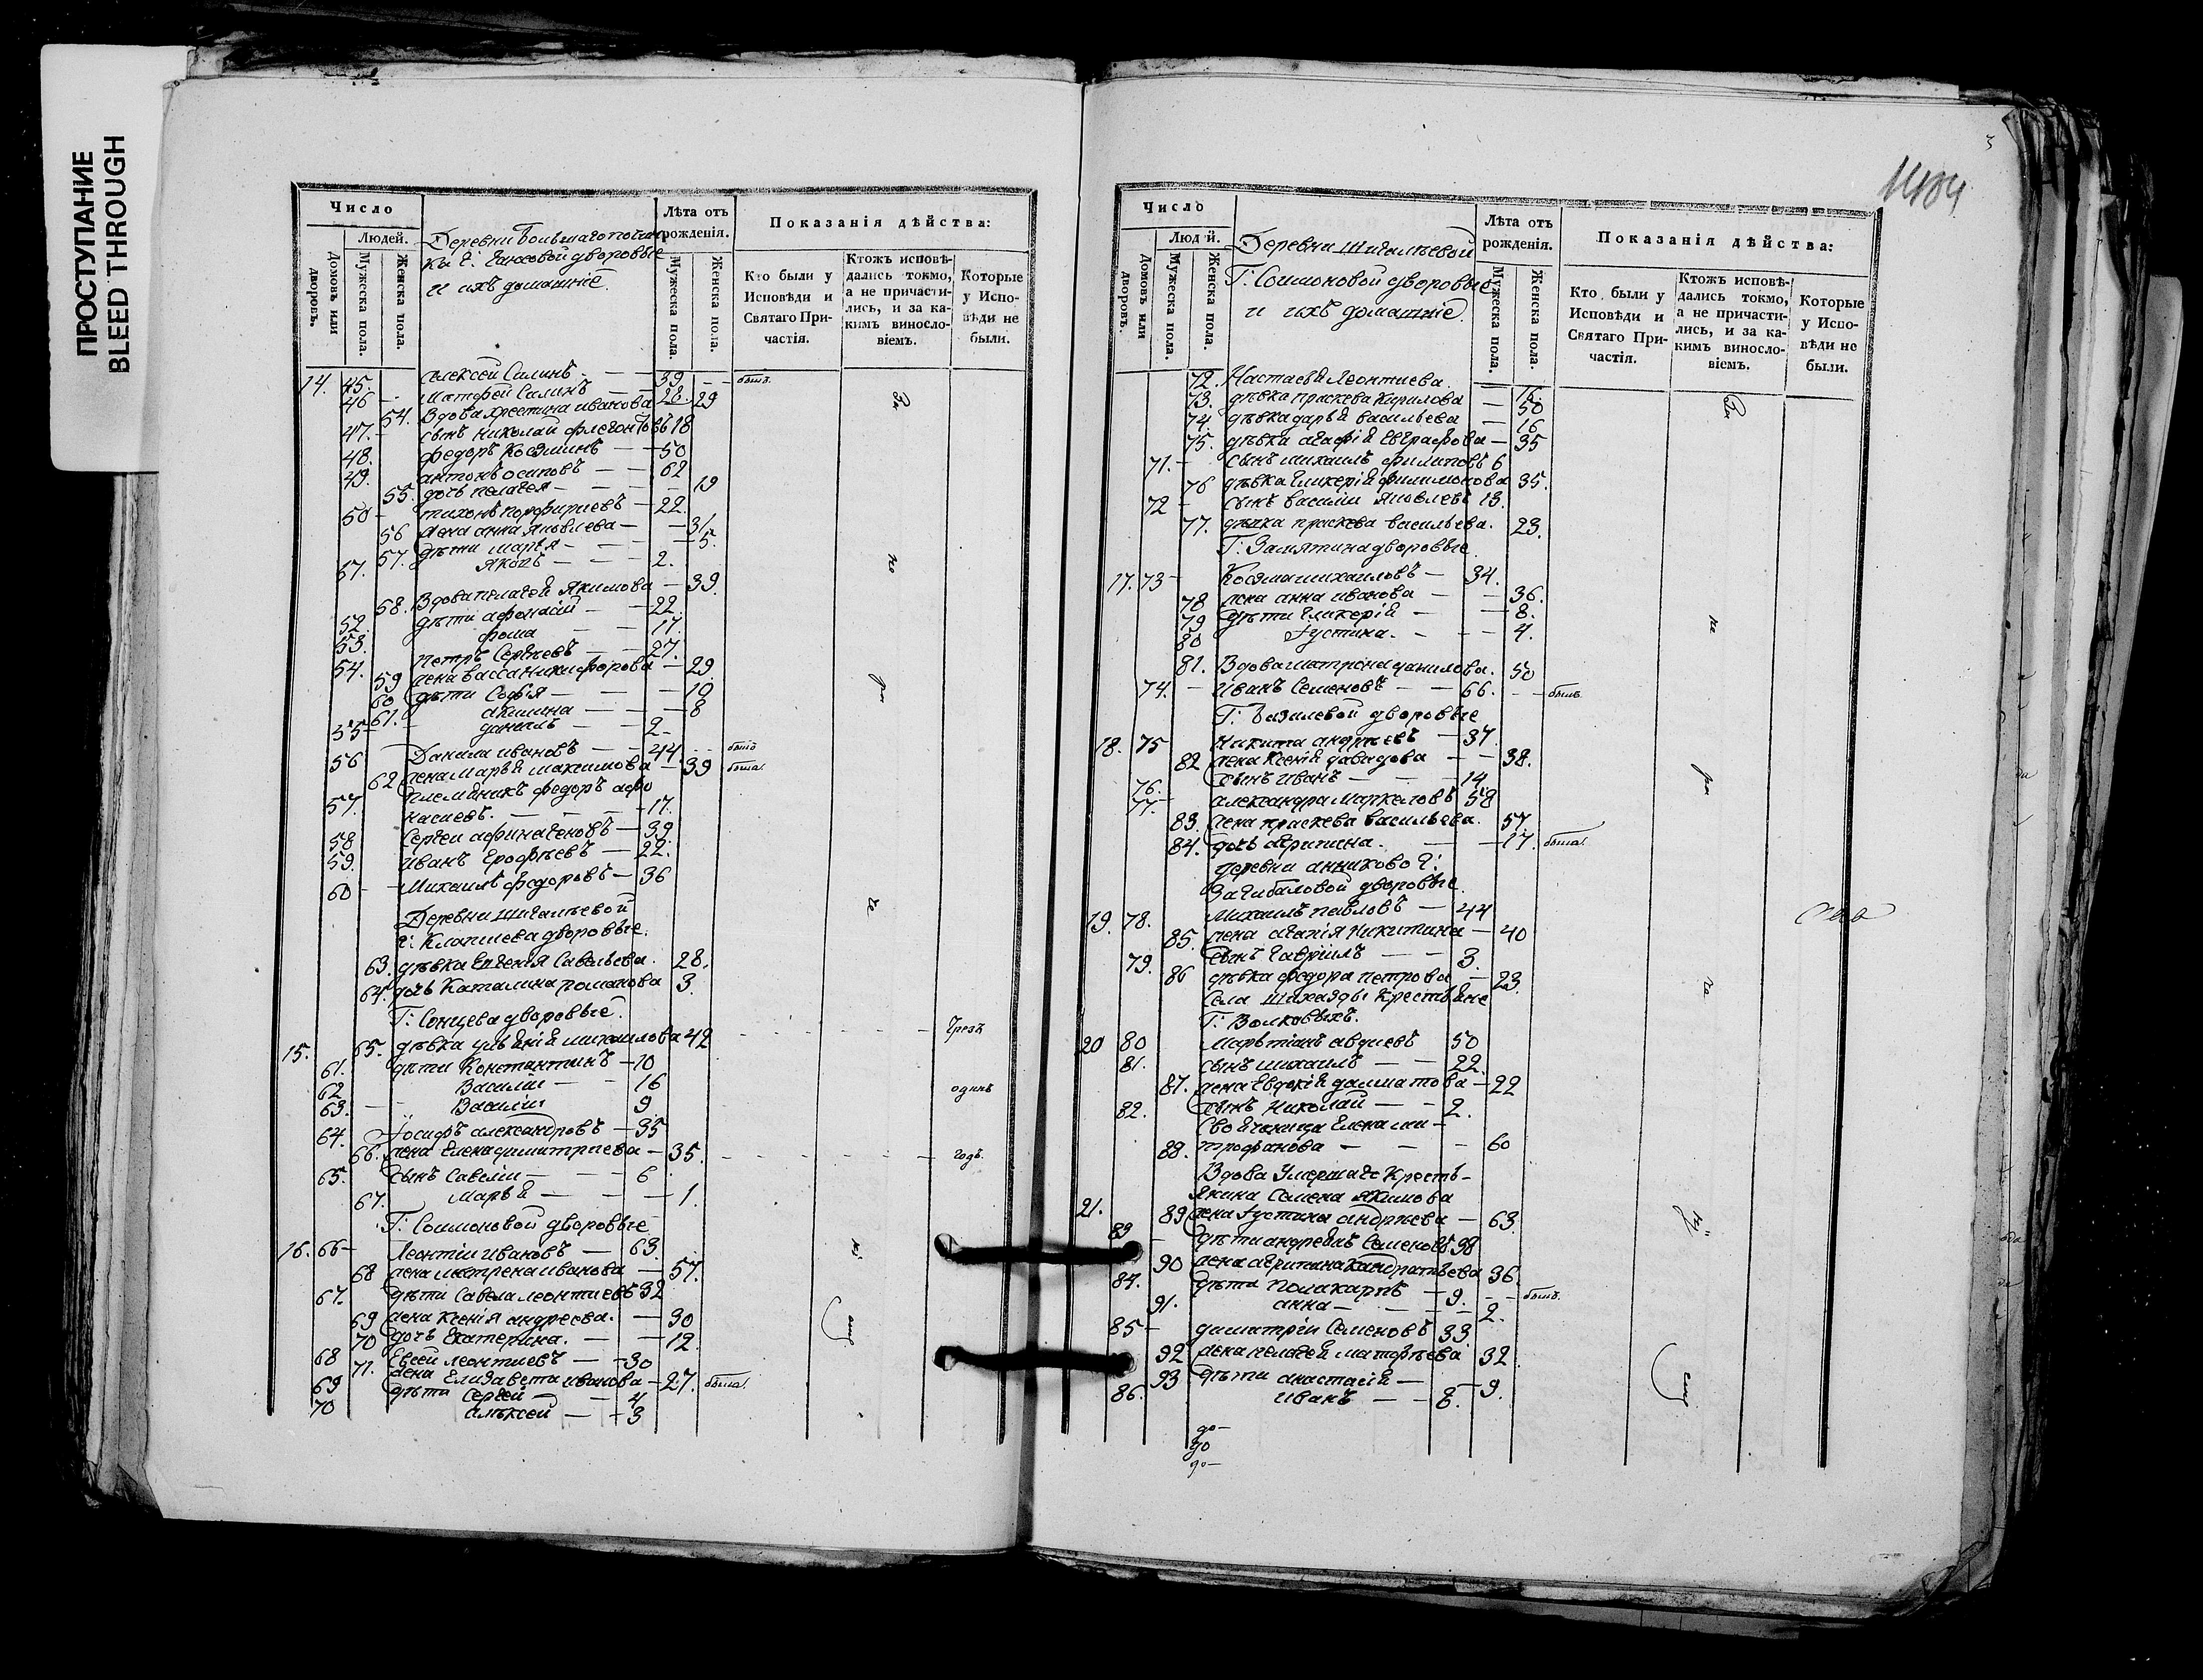 ПРОСТУПАНИЕ
BLEED THROUGH
Число
Людей.
Домовъ или дворовъ.
Мужеска пола.
Женска пола.
Деревни
дворовые
и ихъ домашніе.
Лѣта отъ рожденія.
Мужеска пола.
Женска пола.
Показанія дѣйства:
Кто были у Исповѣди и Святаго Причастія.
Ктожъ исповѣдались токмо, а не причастились, и за какимъ винословіемъ.
Которые у Исповѣди не были.
14. 45. Алексей Силинъ — 39 — былъ.
46 — Матфей Силинъ — 28.
54. Вдова Хрестина Иванова 29
47. — сынъ Николай 18
48. Федоръ Козминъ — 50
49. Антонъ Осиповъ — 62
55. дочь Пелагея — 19
50 — Тихонъ Порфириевъ — 22.
56 жена Анна Яковлева — 31.
57. дѣти Марья — 5.
Яковъ — 2.
58. Вдова Пелагея Якимова — 39.
52. дѣти Афонасій — 22.
53. Фома — 17.
54. Петръ Сергѣевъ — 27.
59 жена Васса Никифорова — 29.
60 дѣти Софья — 10
61. Акилина — 8
55 — Данилъ — 2
56 Данила Ивановъ — 44. былъ
62 жена Марья Максимова — 39 была.
57. племянникъ Федоръ Афо
насиевъ. — 17.
58 Сергей — 39
59. Иванъ Ерофѣевъ — 22.
60 — Михаилъ Федоровъ — 36
Деревни Шигалѣевой
дворовые.
63. дѣвка Евгенія Савельева. 28.
64. дочь Романова 3.
Г: Сонцева дворовые.
15. 65. дѣвка Михаилова 42 — чрезъ
61. дѣти Константинъ — 10
62 Василій — 16
одинъ
63. — Василій 9
64. Іосифъ Александровъ — 35
66. жена Елена Димитриева — 35. — годъ.
65. сынъ Савелій — 6
67. Марья — 1.
Г: Соимоновой дворовые
16. 66 — Леонтій Ивановъ — 63.
68 жена Матрена Иванова — 57.
67. дѣти Савела Леонтиевъ 32
69 жена Ксенія Андреева. — 30
70 дочь Екатерина. — 12.
68 Евсей Леонтиевъ — 30
71. жена Елизавета Иванова — 27. была.
69 дѣти Сергей — 4
70 Алѣксей — 3
3
Число
Людей.
Домовъ или дворовъ.
Мужеска пола.
Женска пола.
Деревни Шигалѣевой
Г: Соимоновой дворовые
и ихъ домашніе.
Лѣта отъ рожденія.
Мужеска пола.
Женска пола.
Показанія дѣйства:
Кто были у Исповѣди и Святаго Причастія.
Ктожъ исповѣдались токмо, а не причастились, и за какимъ винословіемъ.
Которые у Исповѣди не были.
72. Настасья Леонтиева. — 16.
73. дѣвка Праскева Кирилова — 50
74. дѣвка Дарья Васильева — 16
75. дѣвка Агафія Евграфова — 35
71. — сынъ Михаилъ Филиповъ 6
76 дѣвка Гликерія Филимонова 35.
72 — сынъ Василій Яковлевъ 13.
77. дѣвка Праскева Васильева. 23.
Г: Замятина дворовые.
17. 73 — Козма Михаиловъ — 34.
78 жена Анна Иванова — 36.
79 дѣти Гликерія — 8.
80 Іустина. — 4.
81. Вдова Матрона Данилова. 50
74. — Иванъ Семеновъ — 66. — былъ.
Г: дворовые
18. 75 Никита Андрѣевъ — 37.
82 жена Ксенія Давидова — 38.
76. сынъ Иванъ — 14
77. — Александра Маркеловъ 58
83. жена Праскева Васильева. 57.
84. дочь Агрипина. — 17. была.
деревни Аниково Г:
Загибаловой дворовые.
19. 78. Михаилъ Павловъ — 44
85. жена Агапія Никитина — 40
79. сынъ Гавріилъ — 3.
86 дѣвка Федора Петрова — 23.
Села Крестьяне
Г: Волковыхъ.
20 80 Авдиевъ 50
81. сынъ Михаилъ — 22.
87. жена Евдокія Далматова — 22
82. сынъ Николай — 2.
Елена Ми-
88. трофанова — 60
Вдова умершаго Кресть-
янина Семена Якимова
21. 89 жена Іустина Андрѣева — 63.
83 — дѣти Андреянъ Семеновъ 38
90 жена Агрипина Кондратьева 36.
84. дѣти Поликарпъ — 9. — былъ.
91. Анна — 2.
85 — Димитрій Семеновъ 33
92 жена Пелагея Матфѣева 32
93 дѣти Анастасія — 9.
86. Иванъ — 8.